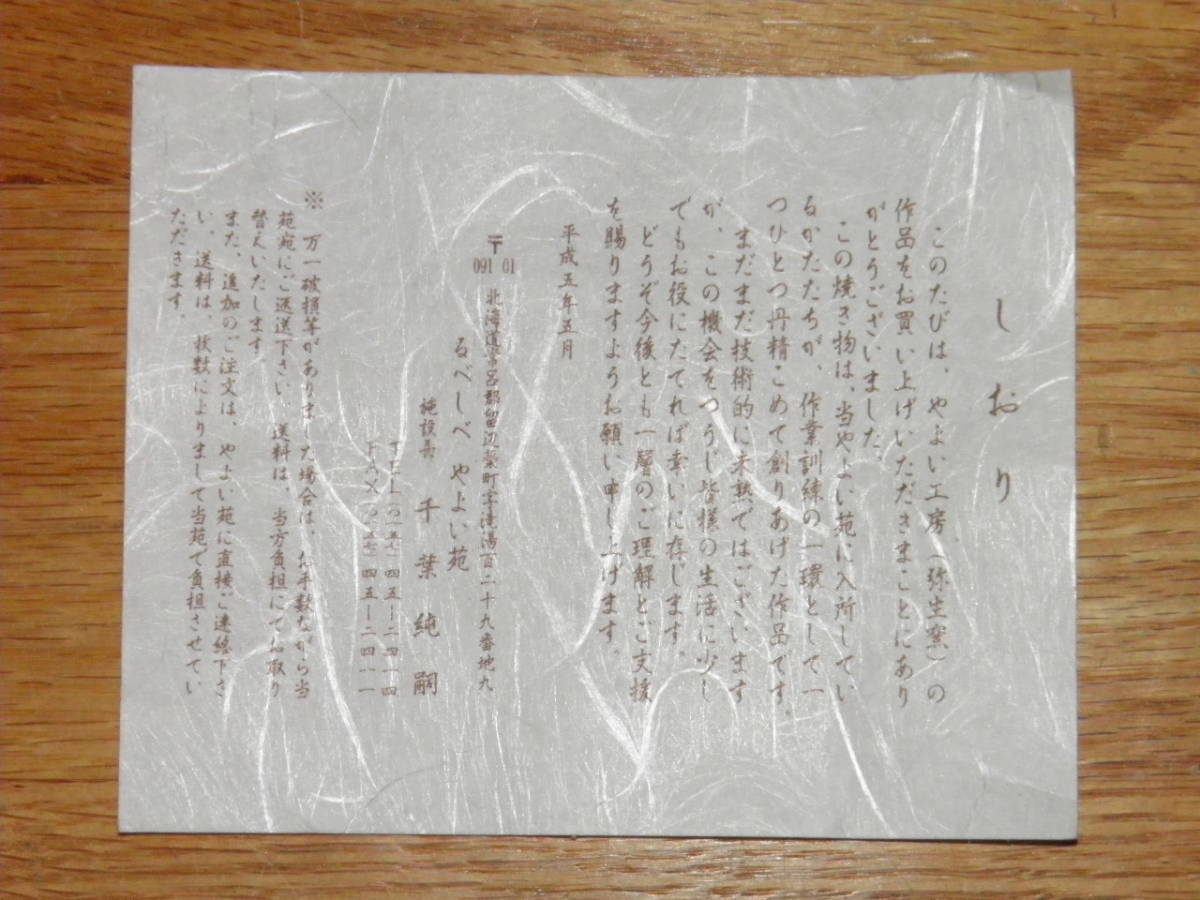 しおり
このたびは、やよい工房（弥生窯）の
作品をお買い上げいただきまことにあり
がとうございました。
この焼き物は、当やよい苑に入所してい
るかたたちが、作業訓練の一環として一
つひとつ丹精こめて創りあげた作品です。
まだまだ技術的に未熟ではございます
が、この機会をつうじ皆様の生活に少し
でもお役にたてれば幸いに存じます。
どうぞ今後とも一層のご理解とご支援
を賜りますようお願い申し上げます。
平成五年五月
〒091 01 北海道常呂郡留辺蘂町字滝湯百二十九番地九
るべしべ やよい苑
施設長 千葉純嗣
TEL〇一五七-四五-二四一四
FAX〇一五七-四五-二四一一
※ 万一破損等がありました場合は、お手数ながら当
苑宛にご返送下さい。送料は、当方負担にてお取り
替えいたします。
また、追加のご注文は、やよい苑に直接ご連絡下さ
い、送料は、枚数によりまして当苑で負担させてい
ただきます。